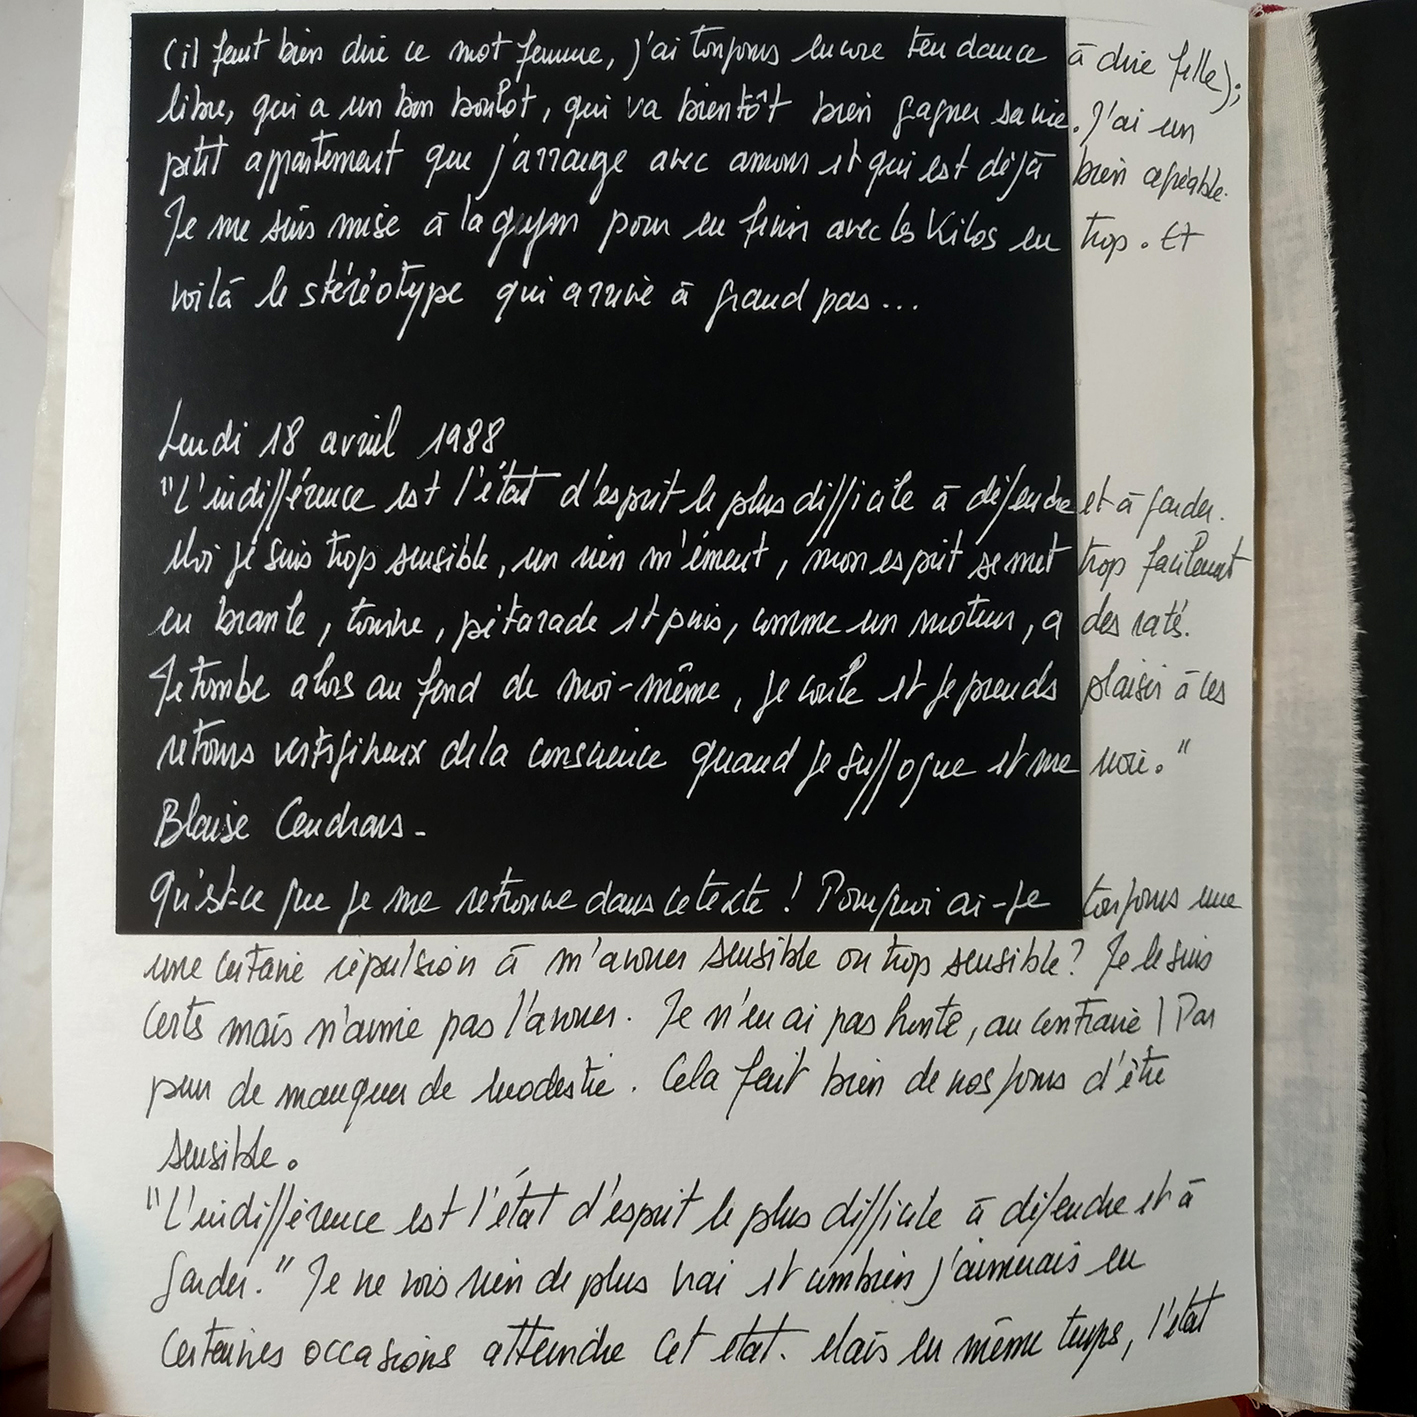 (il faut bien dire ce mot femme, j'ai toujours encore tendance à dire fille);
libre, qui a un bon boulot, qui va bientôt bien gagner sa vie. J'ai un
petit appartement que j'arrange avec amour et qui est déjà bien agréable.
Je me suis mise à la gym pour en finir avec les Kilos en trop. Et
voilà le stéréotype qui arrive à grand pas...
Lundi 18 avril 1988
"L'indifférence est l'état d'esprit le plus difficile à défendre et à garder.
Moi je suis trop sensible, un rien m'émeut, mon esprit se met trop facilement
en branle, tourne, pétarade et puis, comme un moteur, a des ratés.
Je tombe alors au fond de moi-même, je coule et je prends plaisir à ces
retours vertigineux de la conscience quand je suffoque et me noie."
Blaise Cendrars -
Qu'est-ce que je me retrouve dans ce texte ! Pourquoi ai-je toujours une
une certaine répulsion à m'avouer sensible ou trop sensible ? Je le suis
certes mais n'aime pas l'avouer. Je n'en ai pas honte, au contraire ! Par
peur de manquer de modestie. Cela fait bien de nos jours d'être
sensible.
"L'indifférence est l'état d'esprit le plus difficile à défendre et à
garder." Je ne vois rien de plus vrai et combien j'aimerais en
certaines occasions atteindre cet état. Mais en même temps, l'état